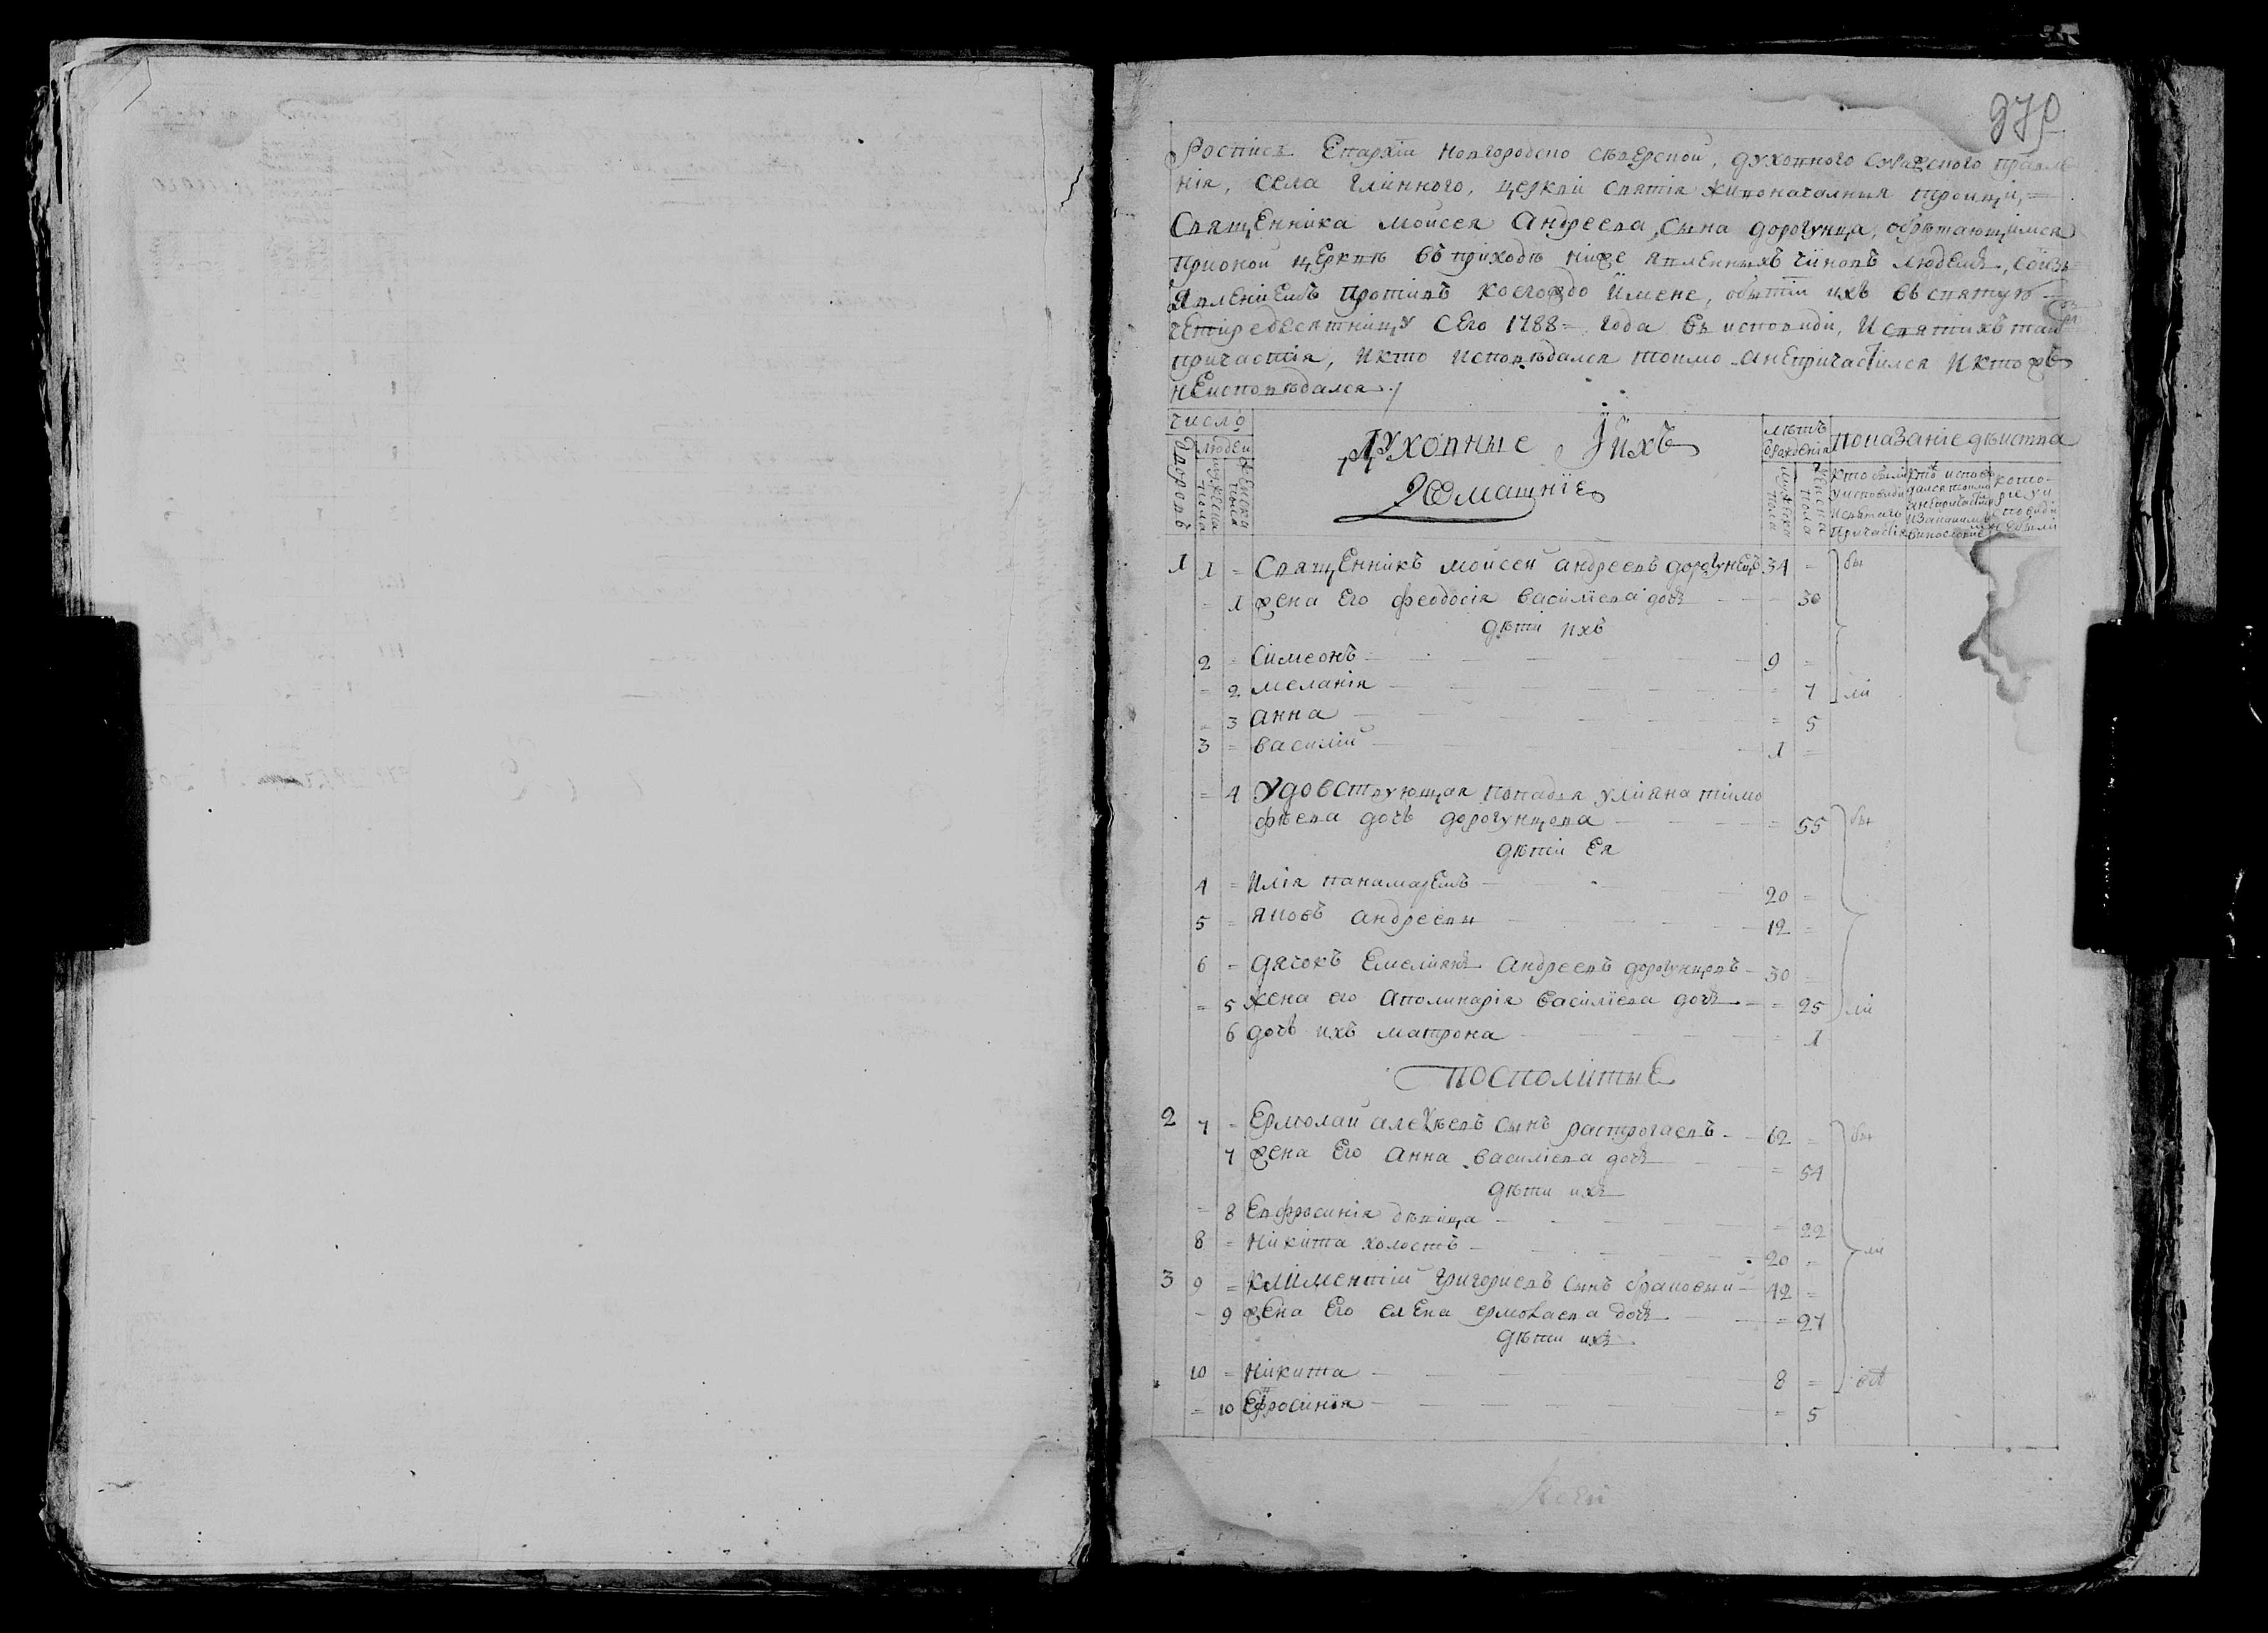 Роспись Епархіи Новгородско Сѣверской, духовного Суражского правле
нія, села Глинного, церкви святія живоначалния Троици,
Священника Моисея Андреева сына Дорогунца, обрѣтающимся
при оной церквѣ въ приходѣ ниже явленныхъ чиновъ людемъ, со изъ
явленіемъ противъ коегождо имене, о бытіи ихъ въ святую
четиредесятницу сего 1788 = года въ исповиди, и святихъ таин
причастія, и кто исповѣдался токмо а не причастился и кто жъ
не исповѣдался
число
людеи
Дворовъ
мужеска пола
женска пола
Духовные и ихъ
домашніе
лѣтъ
рожденія
мужеска пола
женска пола
показаніе дѣиства
кто были
у исповиди
и святаго
причастія
1 1 = Священникъ Моисей Андреевъ Дорогунецъ 34 = бы
= 1 жена его Феодосія Василіева дочь = 30
дѣти ихъ
2 = Симеонъ 9 =
= 2 Меланія = 7 ли
= 3 Анна = 5
3 = Василій 1 =
= 4 Удовствующая попадя Улияна Тимо
фѣева дочь Дорогунцова = 55 бы
дѣти ея
4 = Илія панамаремъ 20 =
5 = Яковъ Андреевы 12 =
6 = Дячокъ Емелиянъ Андреевъ Дорогунцовъ 30 =
= 5 жена его Аполинарія Василіева дочь = 25 ли
6 дочь ихъ Матрона = 1
Посполитые
2 7 = Ермолай Алексѣевъ сынъ Растрогаевъ 62 = бы
7 жена его Анна Василіева дочь = 54
дѣти ихъ
= 8 Евфросинія дѣвица = 22
8 = Никита холостъ 20 = ли
3 9 = Климентій Григориевъ сынъ 42 =
= 9 жена его Елена Ермолаева дочь = 27
дѣти ихъ
10 = Никита 8 =
= 10 Ефросинія = 5